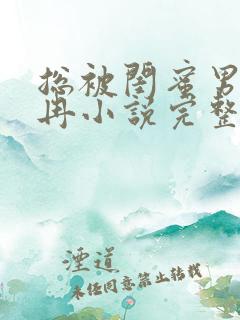 总被闺蜜男
冉小说完整
湮道
未经同意禁止转载